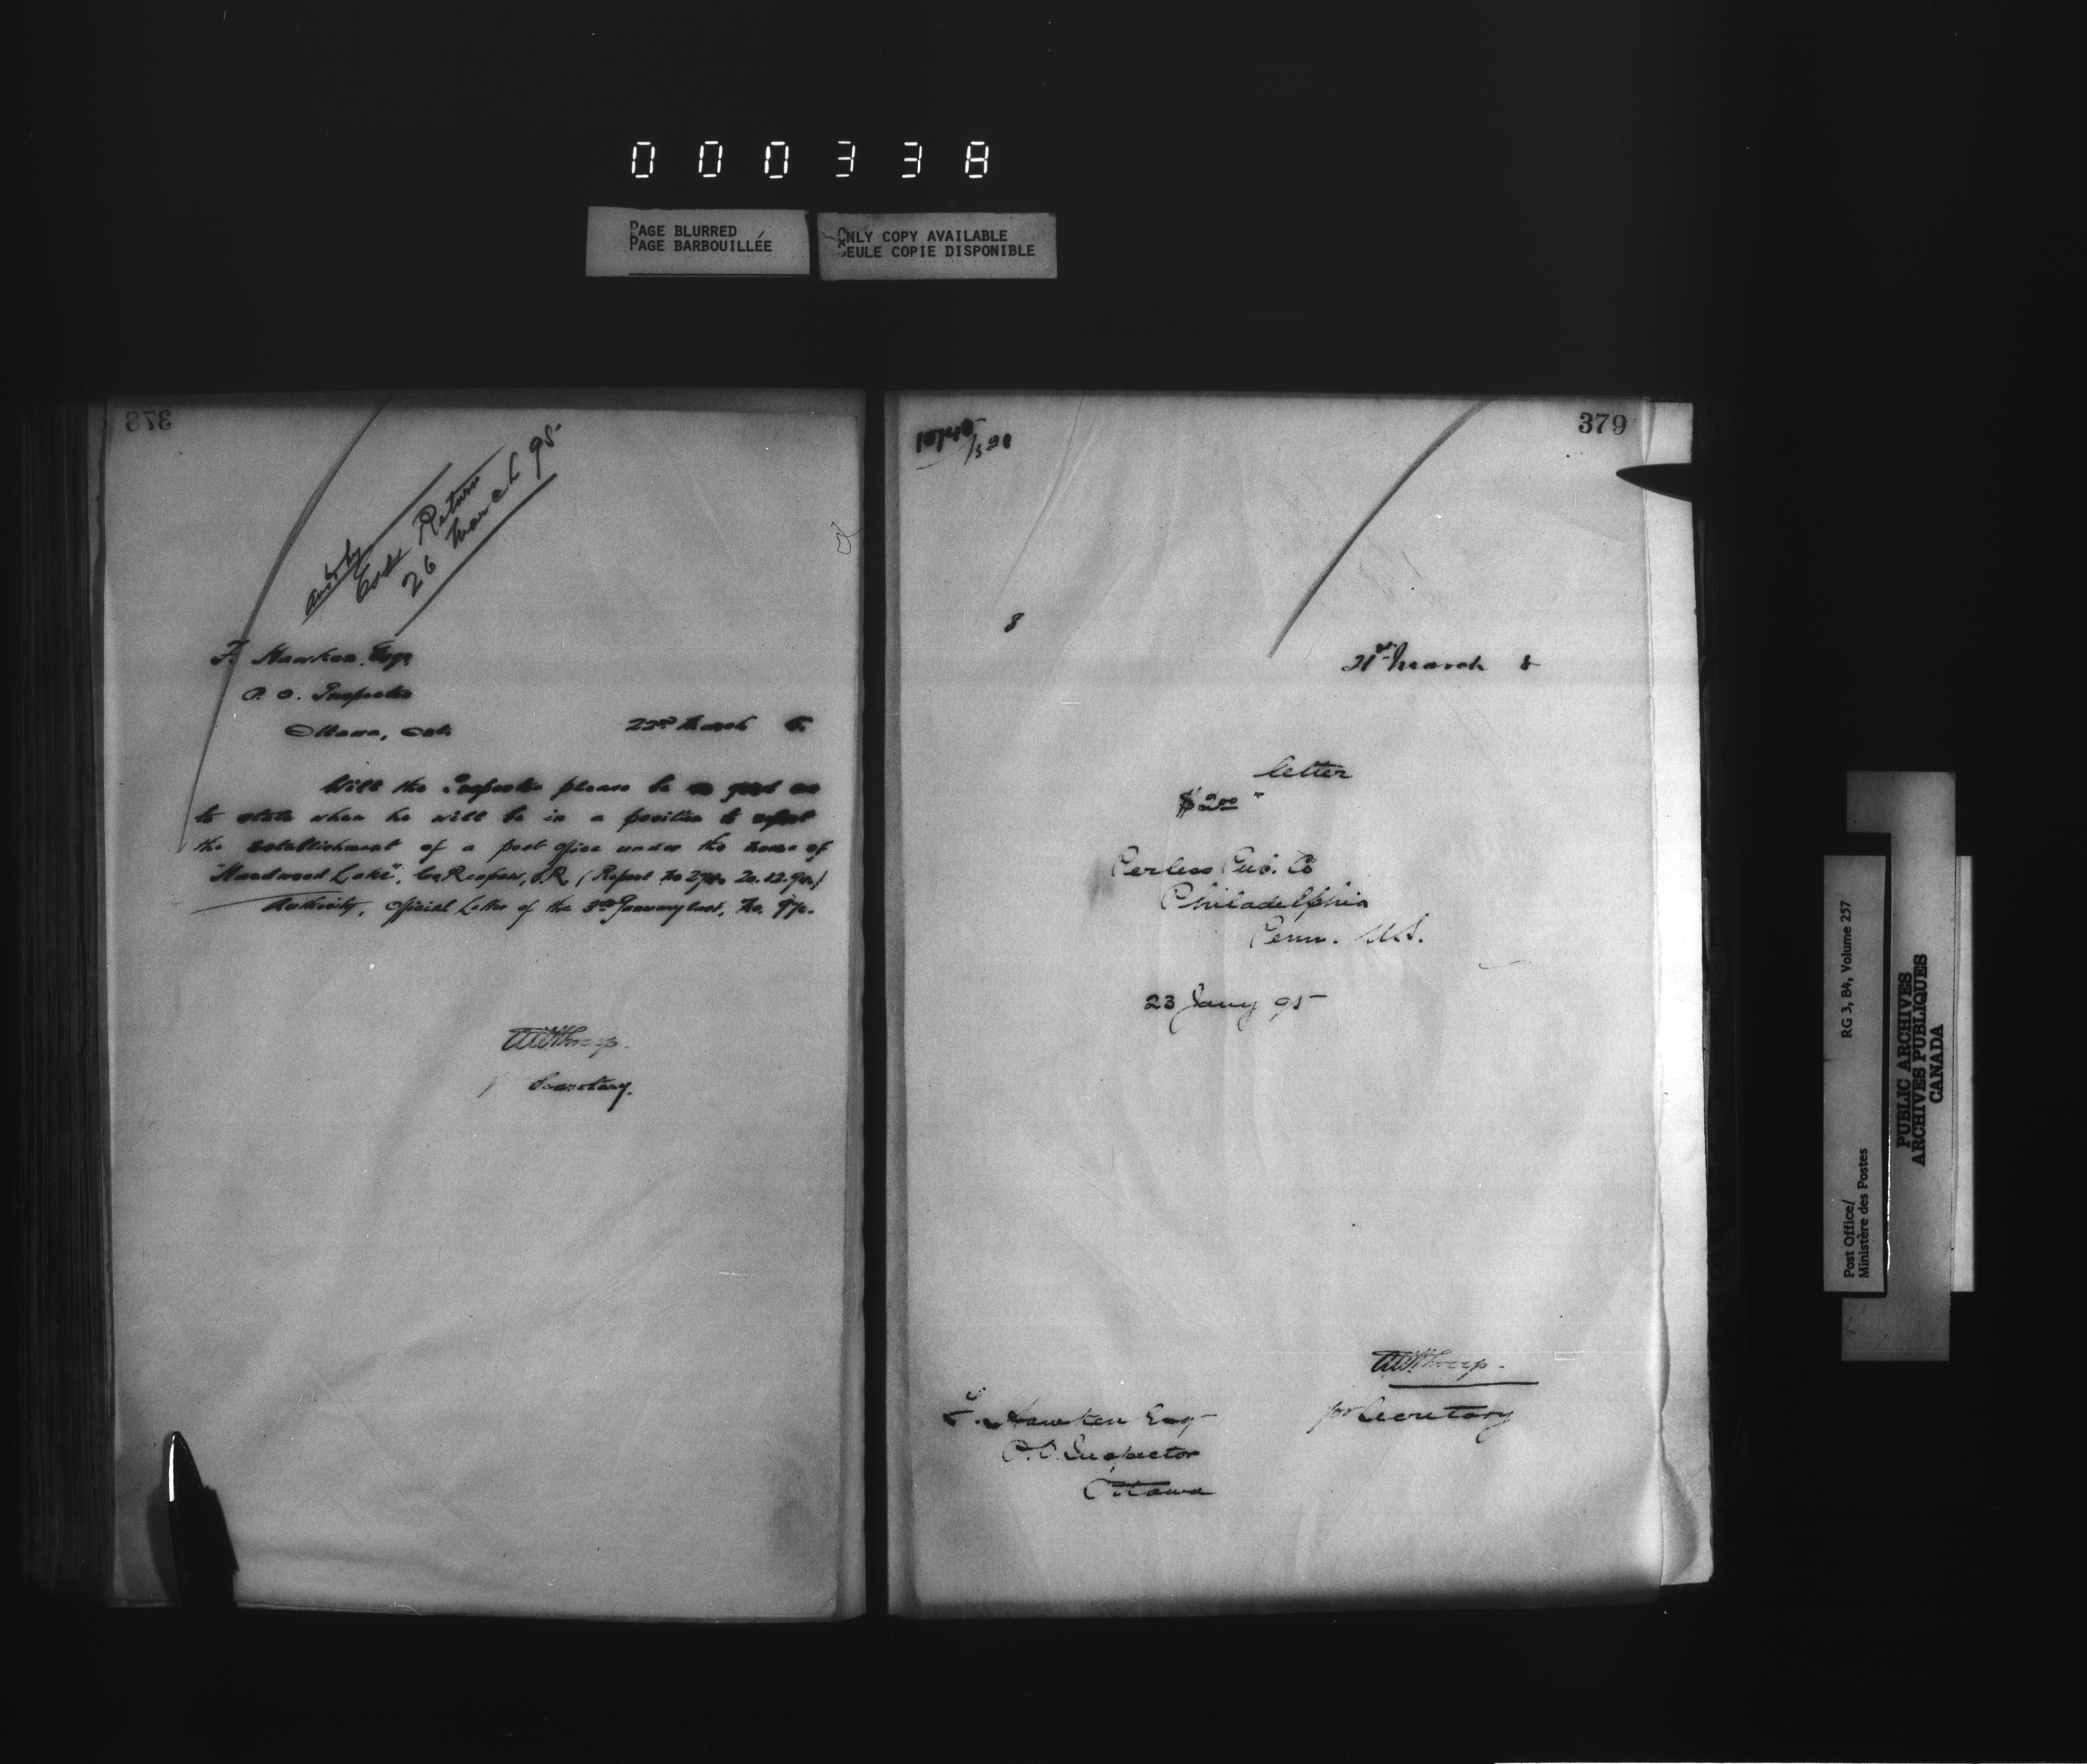 000338
PAGE BLURRED
PAGE BARBOUILLÉE
ONLY COPY AVAILABLE
SEULE COPIE DISPONIBLE
378
Ans'd by
Return
26 March 95
F. Hawken, Esq,
P. O. Inspector
Ottawa, Ont.
23rd March 5.
Will the Inspector please be so good as
to state when he will be in a position to report
the establishment of a post office under the name of
"Hardwood Lake", Co. Renfrew, S.R. (Report No 20.12.94)
Authority, Official Letter of the 3rd January last, No.
Secretary.
379
8
21st March 5
letter
$2.00 "
Perless Pub. Co
Philadelphia
Penn. U.S.
23 Jany 95
for Secretary
F. Hawken Esq
P.O. Inspector
Ottawa
Post Office/
Ministère des Postes
RG 3, B4, Volume 257
PUBLIC ARCHIVES
ARCHIVES PUBLIQUES
CANADA